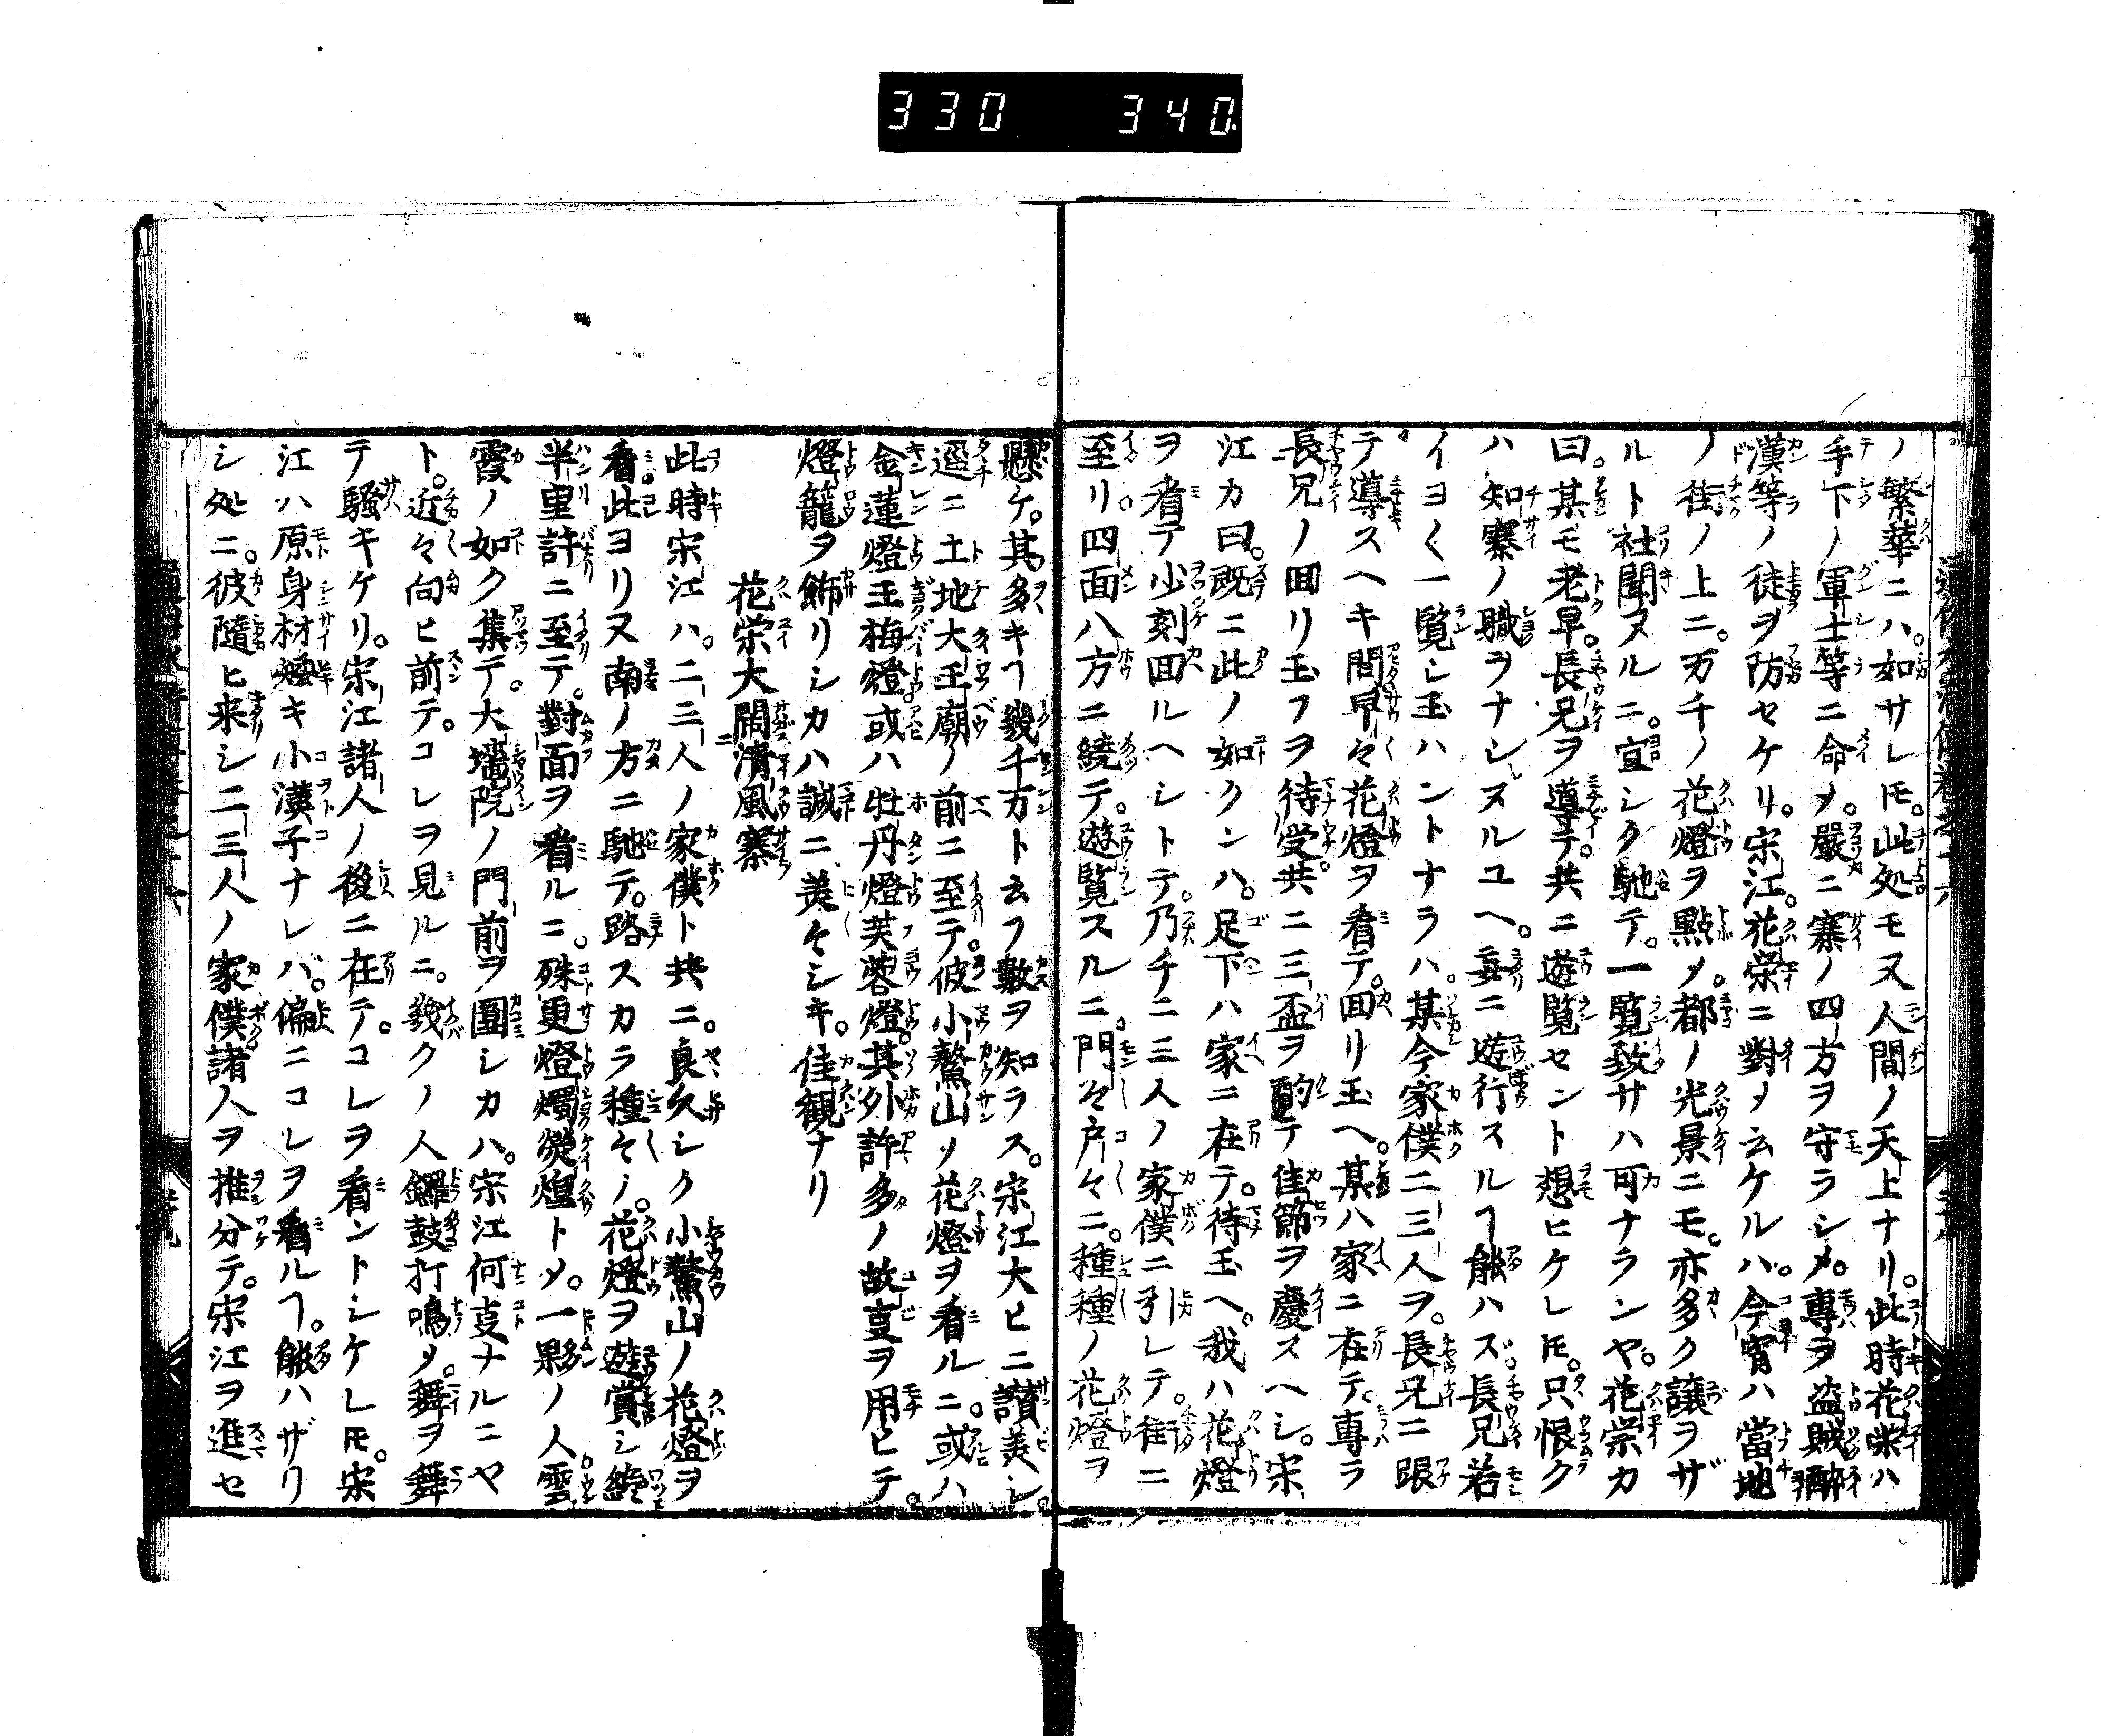 330 340.
ノ繁華ニハ。如サレ𪜈。此処モ又人間ノ天上ナリ。此時花栄ハ
手下ノ軍士等ニ命〆。嚴ニ寨ノ四方ヲ守ラシメ。專ヲ盗賊酔
漢等ノ徒ヲ防セケリ。宋江。花栄ニ對〆云ケルハ。今宵ハ當地
ノ街ノ上ニ。万千ノ花燈ヲ點〆。都ノ光景ニモ。亦多ク譲ヲザ
ルト社聞ヌルニ。宜シク馳テ。一覧致サハ可ナランヤ。花栄カ
曰。某モ老早。長兄ヲ導テ。共ニ遊覧セント想ヒケレ𪜈。只恨ク
ハ知寨ノ職ヲナシヌルユヘ。妄ニ遊行スルヿ能ハズ。長兄若
イヨ〱一覧シ玉ハントナラハ。某今家僕二三人ヲ。長兄ニ跟
テ導スヘキ間早々花燈ヲ看テ。回リ玉ヘ。某ハ家ニ在テ。專ラ
長兄ノ回リ玉フヲ待受。共ニ三盃ヲ酌テ佳節ヲ慶スヘシ。宋
江カ曰。既ニ此ノ如クンハ。足下ハ家ニ在テ。待玉ヘ。我ハ花燈
ヲ看テ少刻回ルヘシトテ。乃チ二三人ノ家僕ニ引レテ。街ニ
至リ。四面八方ニ繞テ。遊覧スルニ。門々戸々ニ。種種ノ花燈ヲ
懸ケ。其多キヿ幾千万ト云フ数ヲ知ラス。宋江大ヒニ讃美シ。
逕ニ土地大王廟ノ前ニ至テ。彼小鰲山ノ花燈ヲ看ルニ。或ハ
金蓮燈玉梅燈。或ハ牡丹燈芙蓉燈。其外許多ノ故叓ヲ用ヒテ。
燈籠ヲ飾リシカハ誠ニ美々シキ。佳観ナリ
花栄大閙清風寨
此時宋江ハ。二三人ノ家僕ト共ニ。良久シク小鰲山ノ花燈ヲ
看。此ヨリ又南ノ方ニ馳テ。路スカラ種々ノ。花燈ヲ遊賞シ。纔
半里許ニ至テ。對面ヲ看ルニ。殊更燈燭熒煌ト〆。一夥ノ人。雲
霞ノ如ク集テ。大墻院ノ門前ヲ圍シカハ。宋江何叓ナルニヤ
ト。近々向ヒ前テ。コレヲ見ルニ。幾クノ人鑼鼓打鳴〆。舞ヲ舞
テ騒キケリ。宋江諸人ノ後ニ在テ。コレヲ看ントシケレ𪜈。宋
江ハ原身材矮キ小漢子ナレバ。偏ニコレヲ看ルヿ。能ハザリ
シ処ニ。彼隨ヒ来シ二三人ノ家僕。諸人ヲ推分テ。宋江ヲ進セ